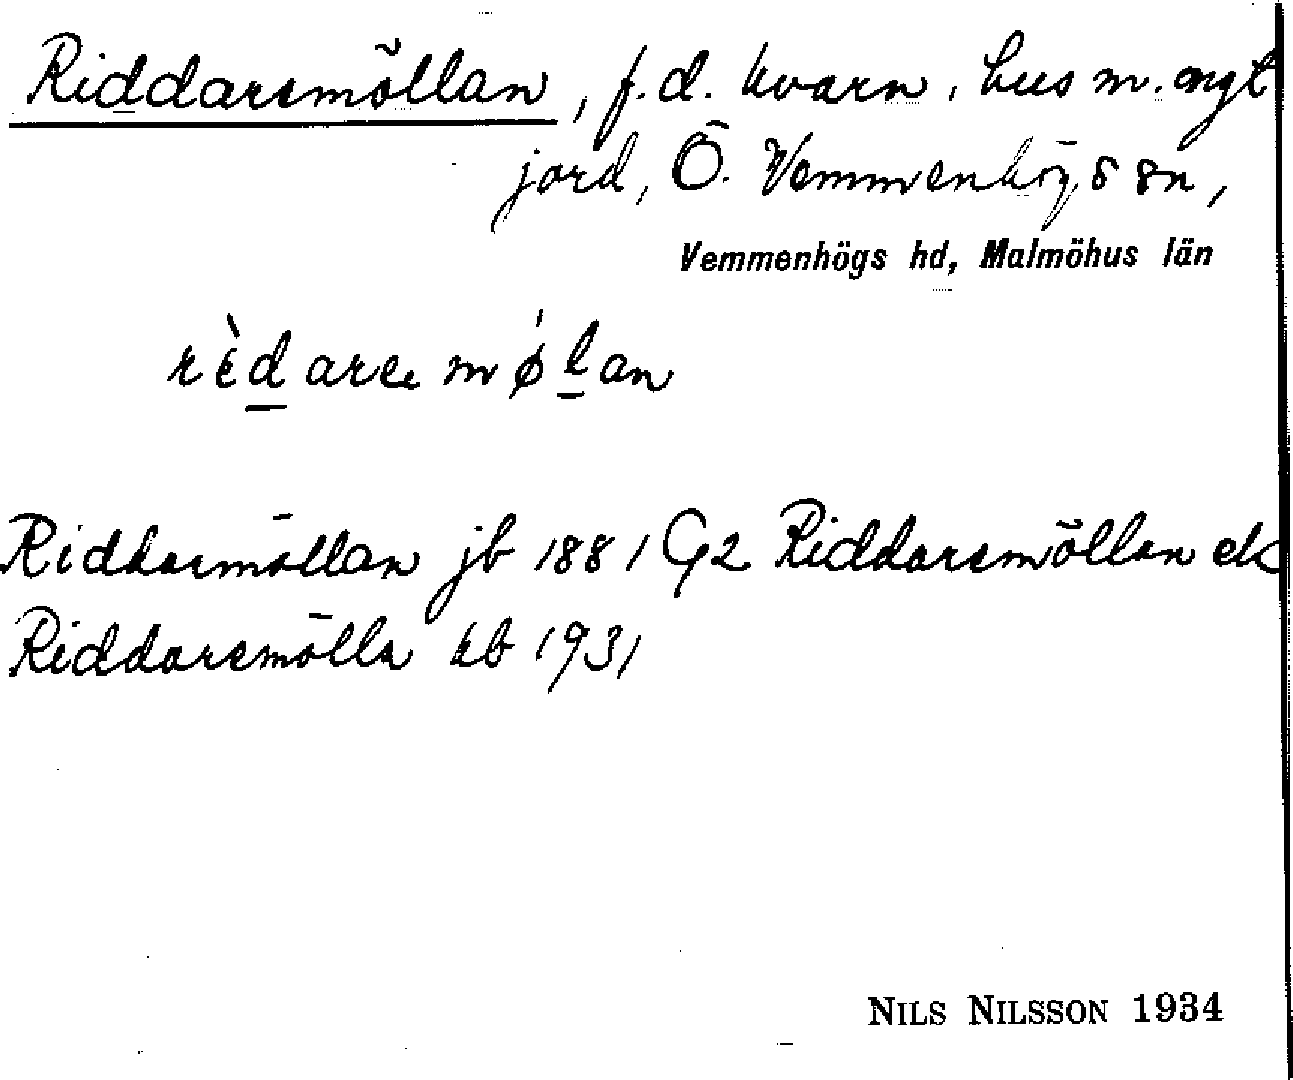 Riddaremöllan, f.d. kvarn, hus m. ngt
jord, Ö. Vemmenhögs sn,
Vemmenhögs hd, Malmöhus län
rèdare mǿlan
Riddarmöllan jb 1881 G2 Riddaremöllan ek
Riddaremölla kb 1931
NILS NILSSON 1934